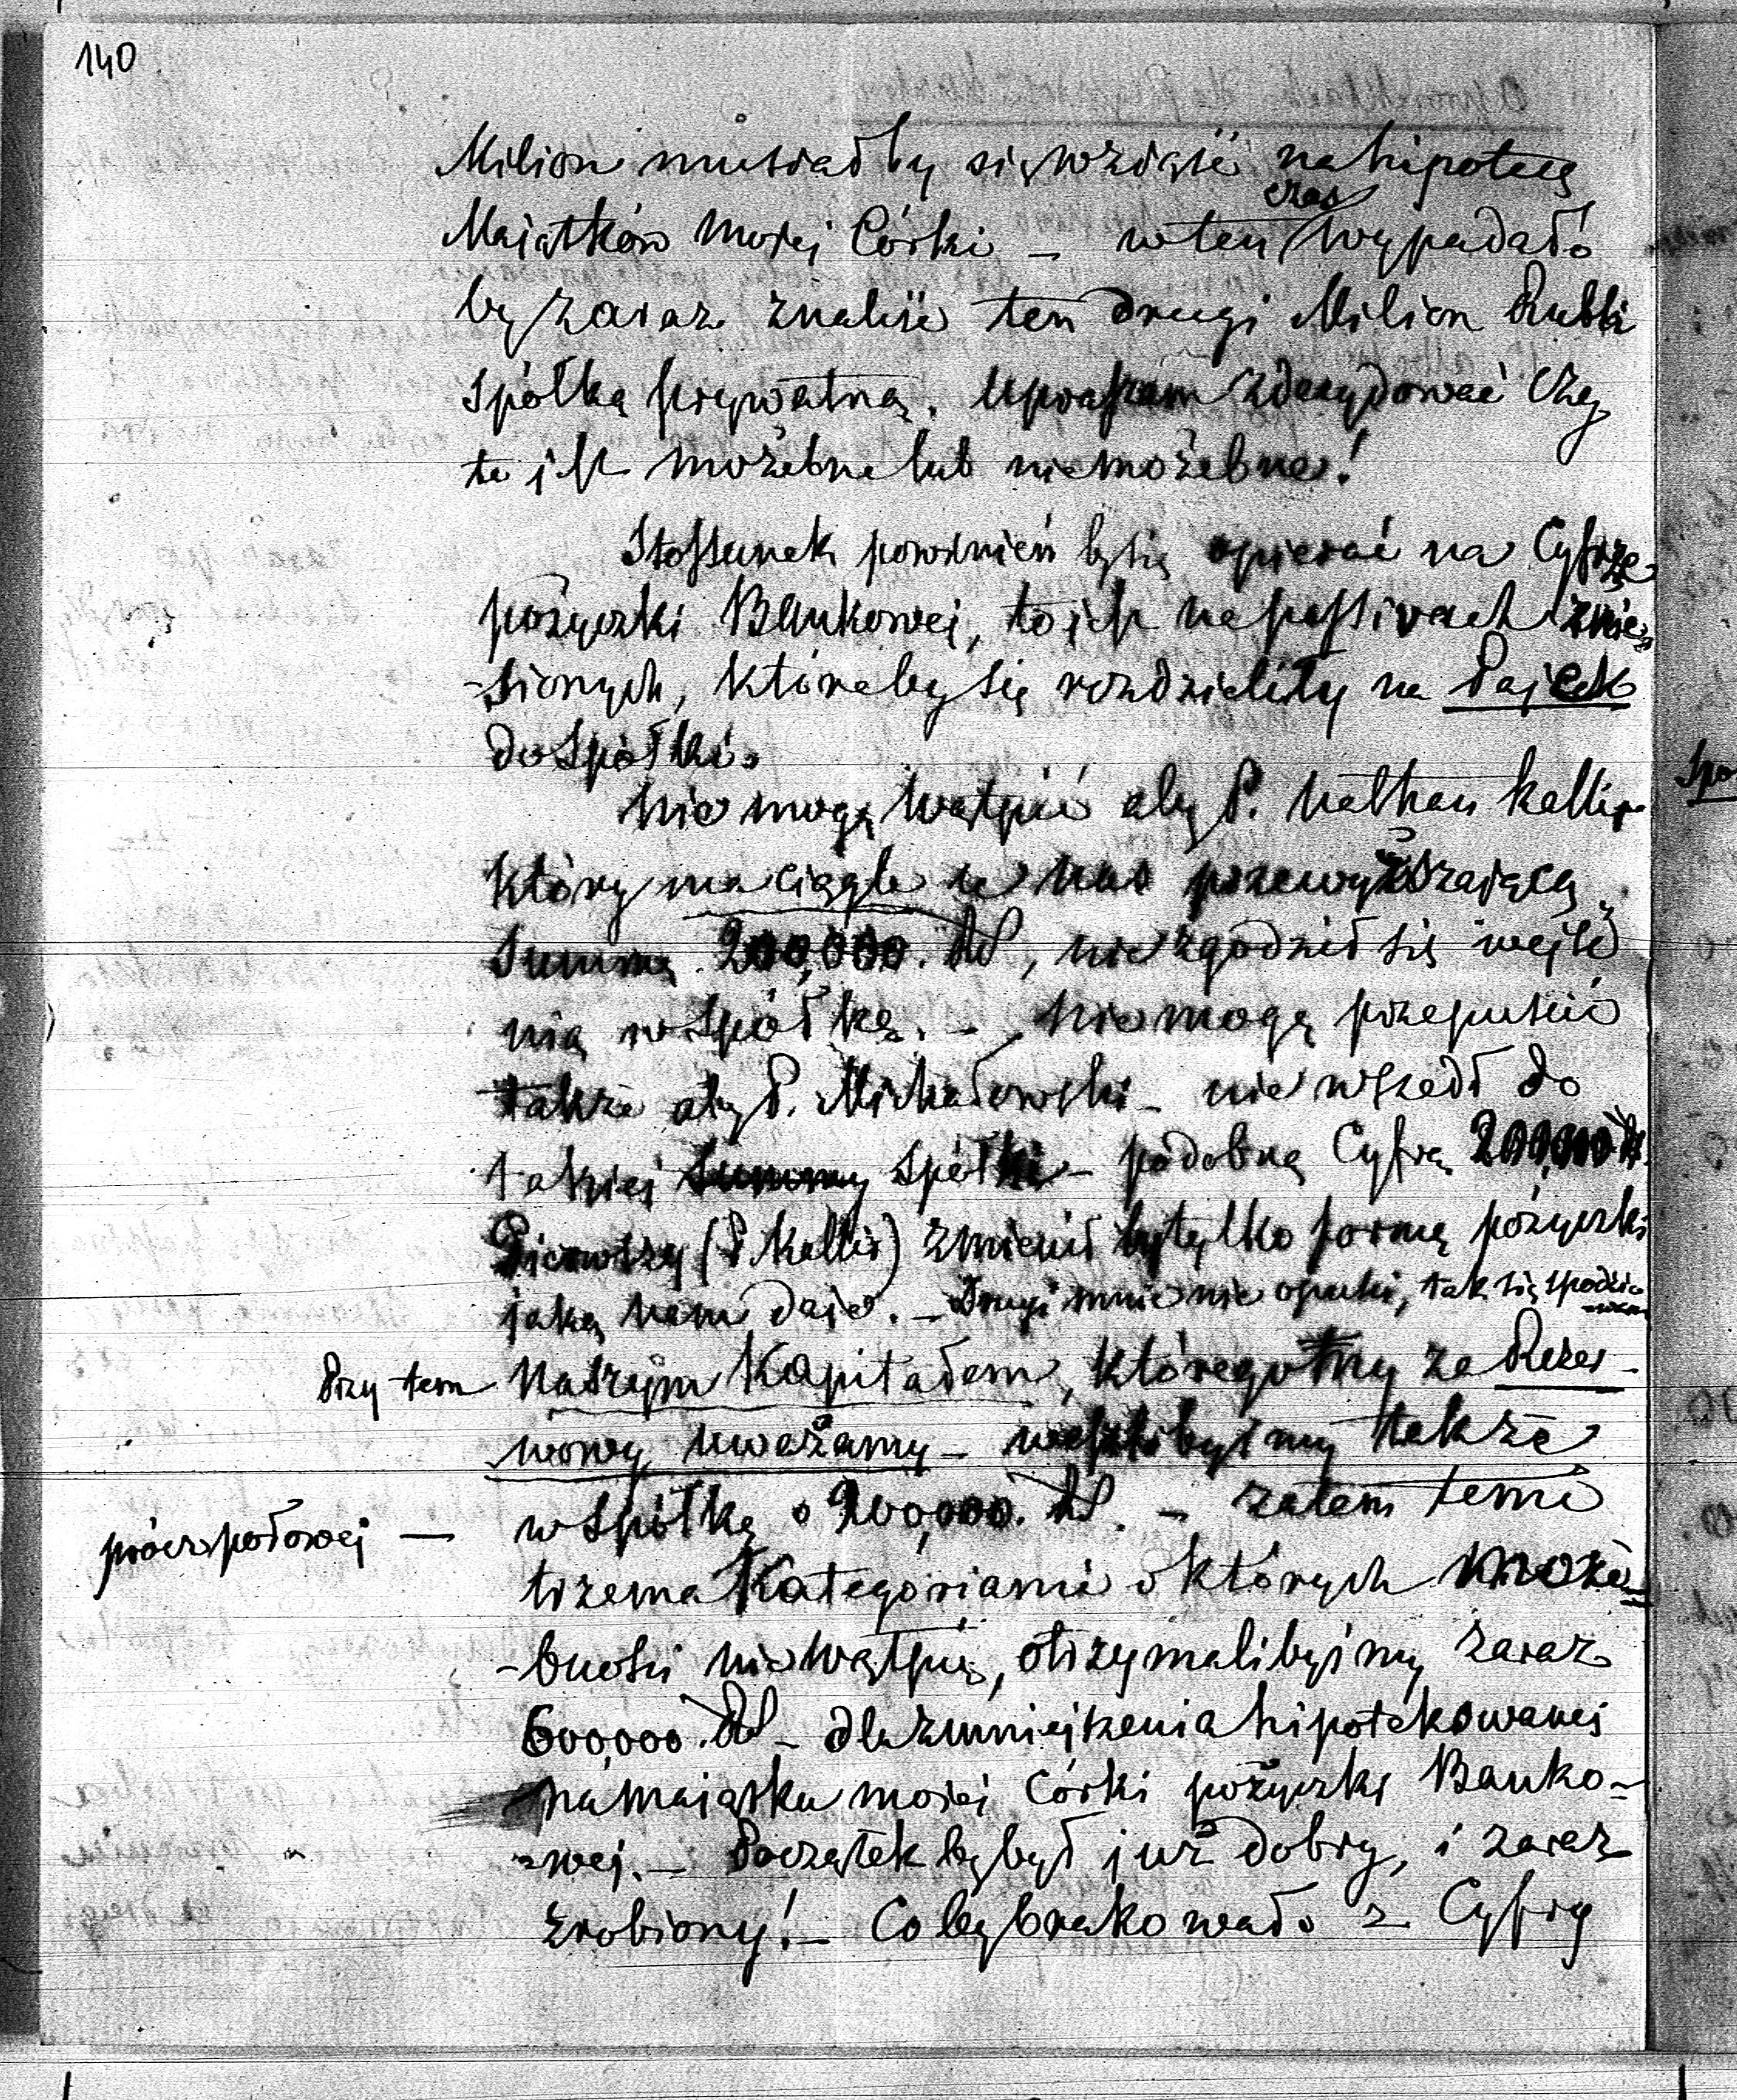 140
Milion musiałby się wziąść na hipotekę
czas
Maiątków moiej Córki – w ten wypadało
by zaraz znaleść ten drugi Milion Rubli
spółką prywatną. Upraszam zdecydować czy
to jest możebne lub niemożebne!
Stossunek powinień by się opierać na Cyfrze
pożyczki Bankowej, to jest na passivach znie-
-sionych, któreby się rozdzieliły na Pajek
do spółki.
Nie mogę wątpić aby P. Nathan Kallir
który ma ciągle u nas przewyższaiącą
Summę 200,000. RS, nie zgodził się wejść
nią w spółkę. – Nie mogę przepuścić
także aby P. Michałowski – nie wszedł do
takiej Summy spółki – podobną Cyfrą 200,000 R.
Pierwszy (P. Kallir) zmienił by tylko formę pożyczki
jaką nam daie. – Drugi mnie nie opuści, tak się spodzie-
-wam
Przy tem Naszym Kapitałem, którego my za Rezer-
wowy uważamy – weszlibyśmy także
w spółkę o 200,000. RS. – zatem temi
prócz połowej —
trzema Kategoriami o których może-
-bności nie wątpię, otrzymalibyśmy zaraz
600,000. RS – dla zmniejszenia hipotekowanej
na maiątku moiej Córki pożyczki Banko-
-wej. – Początek by był już dobry, i zaraz
zrobiony! – Coby brakowało z Cyfry